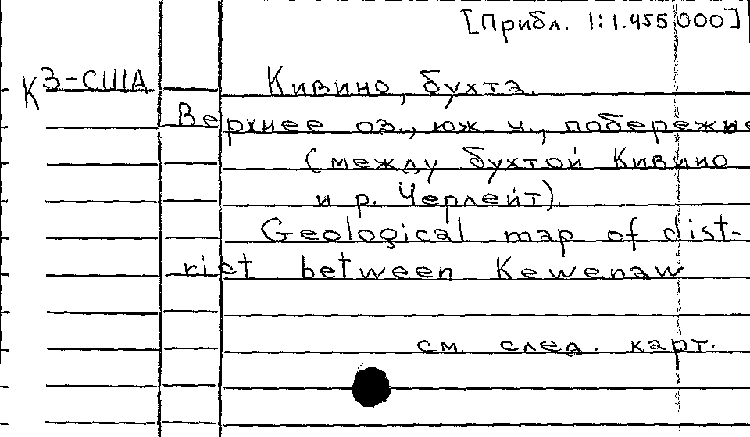 [Прибл. 1:1.455 000]
К3-США
Кивино, бухта.
Верхнее оз., юж. ч., побережье
(между бухтой Кивино
и р. Черлейт).
Geological map of dist-
rict between Kewenaw
см. след. карт.